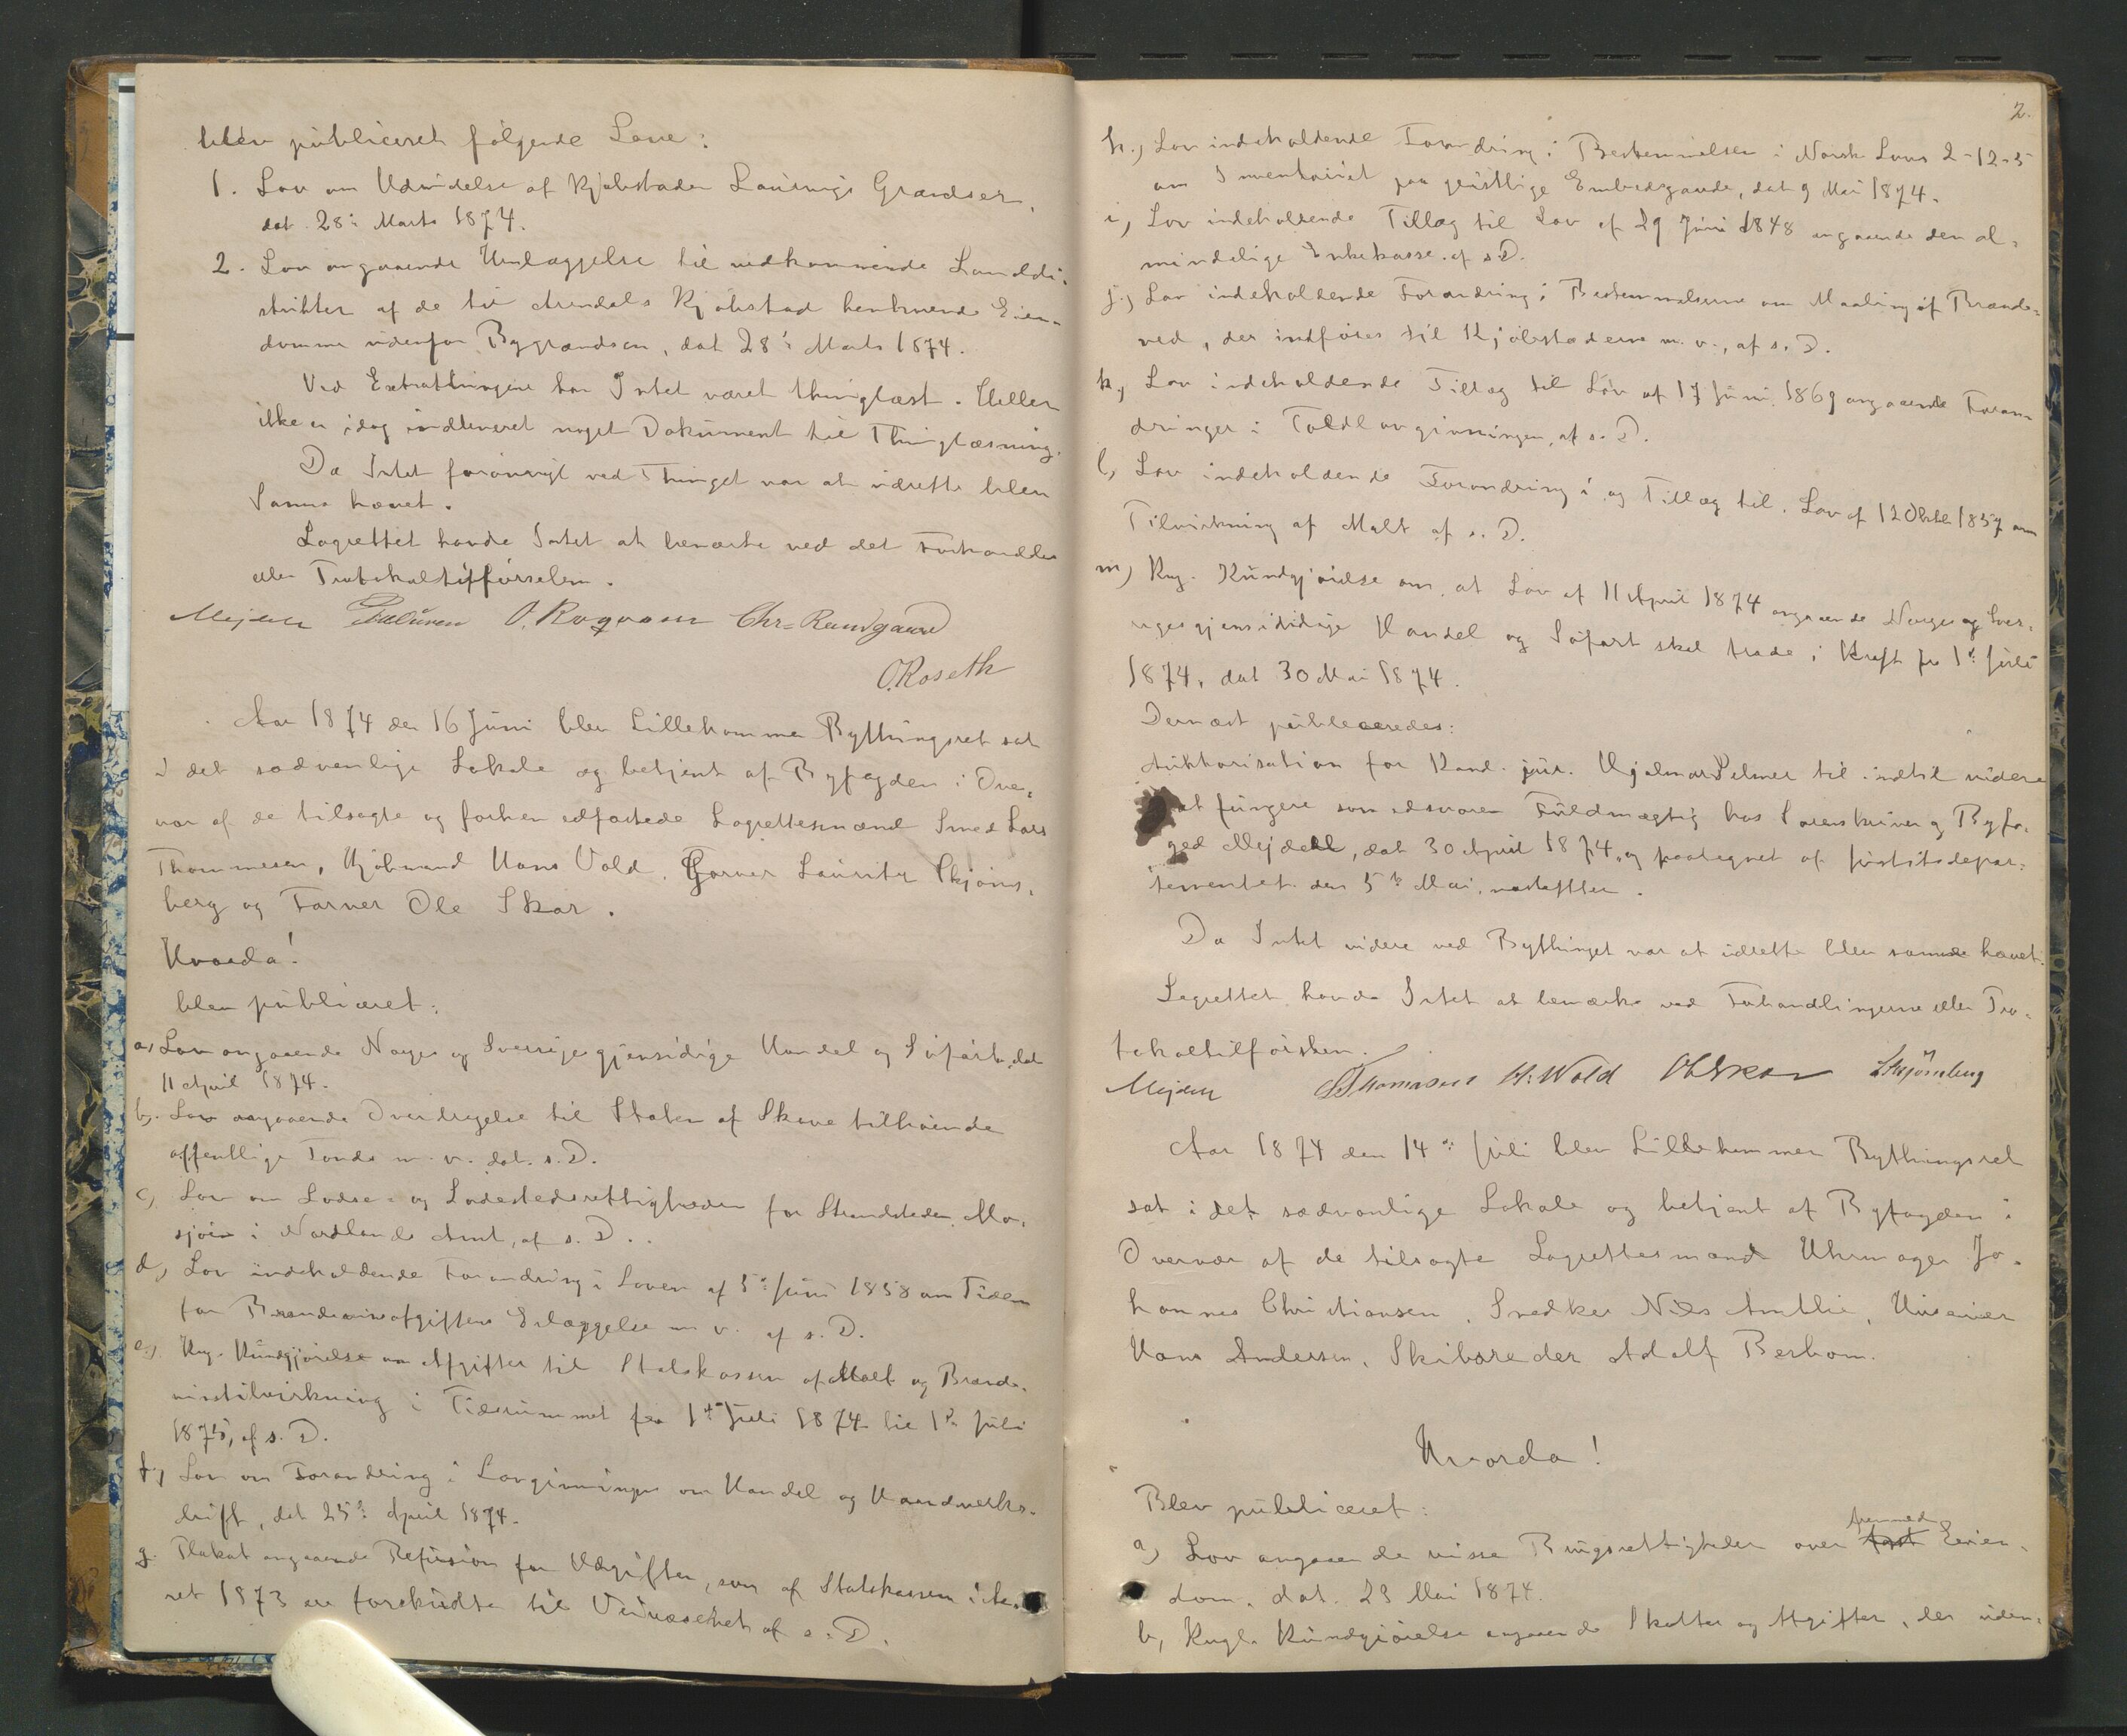 blev publiceret følgende Love:
1. Lov om Udvidelse af Kjøbstaden Laurvigs Grændser,
dat 28de Marts 1874.
2. Lov angaaende Henlæggelse til vedkommende Landdi-
strikter af de til Arendals Kjøbstad henhørende Eien-
domme udenfor Bygrændsen, dat 28de Marts 1874.
Ved Extrathingene har Intet været thinglæst. Heller
ikke er idag indleveret noget Dokument til Thinglæsning.
Da Intet forøvrigt ved Thinget var at udrette blev
Samme hævet.
Lagrettet havde Intet at bemærke ved det Forhandlede
eller Protokoltilførselen.
Mejdell O. Rogvom Chr. Rundgaard
O. Roseth
Aar 1874 den 16 Juni blev Lillehammer Bythingsret sat
i det sædvanlige Lokale og betjent af Byfogden i Over-
vær af de tilsagte og forhen edfæstede Lagrettesmænd Smed Lars
Thommesen, Kjøbmand Hans Vold, Garver Lauritz Skjøns-
berg og Farver Ole Skar.
Hvorda!
blev publiceret:
a, Lov angaaende Norges og Sverriges gjensidige Handel og Søfart, dat
11 April 1874.
b, Lov angaaende Overdragelse til Staten af Skove tilhørende
offentlige Fonds m. v. dat. s. D.
c, Lov om Ladse- og Ladestedsrettigheder for Strandstedet Mo-
sjøen i Nordlands Amt, af s. D.
d, Lov indeholdende Forandring i Loven af 5te Juni 1858 om Tiden
for Brændevinsafgiftens Erlæggelse m. v. af s. D.
e, Kng. Kundgjørelse om Afgifter til Statskassen af Malt og Brænde-
vinstilvirkning i Tidsrummet fra 1ste Juli 1874 til 1ste Juli
1875, af s. D.
f, Lov om Forandring i Lovgivningen om Handel og Haandverks-
drift, dat 25de April 1874.
g. Plakat angaaende Refusion for Udgifter, som af Statskassen i Aa-
ret 1873 ere forskudte til Veivæsenet af s. D.
2.
h., Lov indeholdende Forandring i Bestemmelsen i Norsk Lovs 2-12-5
om Inventariet paa geistlige Embedsgaarde, dat 9 Mai 1874.
i, Lov indeholdende Tillæg til Lov af 29 Juni 1848 angaaende den al-
mindelige Enkekasse. af s. D.
j, Lov indeholdende Forandring i Bestemmelserne om Maaling af Brænde-
ved, der indføres til Kjøbstæderne m. v., af s. D.
k, Lov indeholdende Tillæg til Lov af 17 Juni 1869 angaaende Foran-
dringer i Toldlovgivningen, af s. D.
l, Lov indeholdende Forandring i og Tillæg til Lov af 12 Oktb. 1857 om
Tilvirkning af Malt af s. D.
m, Kng. Kundgjørelse om, at Lov af 11 April 1874 angaaende Norges og Sver-
riges gjensidige Handel og Søfart skal træde i Kraft fra 1ste Juli
1874, dat 30 Mai 1874.
Dernæst publiceredes:
Auktorisation for Kand. jur. Hjalmar Selmer til indtil videre
at fungere som edsvoren Fuldmægtig hos Sorenskriver og Byfo-
ged Mejdell, dat 30 April 1874, og paategnet af Justitsdepar-
tementet den 5te Mai næstefter.
Da Intet videre ved Bythinget var at udrette blev samme hævet.
Lagrettet havde Intet at bemærke ved Forhandlingerne eller Pro-
tokoltilførslen.
Mejdell L. Thomasen H. Wold O Skar L Skjønsberg
Aar 1874 den 14de Juli blev Lillehammer Bythingsret
sat i det sædvanlige Lokale og betjent af Byfogden i
Overvær af de tilsagte Lagrettesmænd Uhrmager Jo-
hannes Christiansen, Snedker Nils Amblie, Huseier
Hans Andersen, Skibsreder Adolf Berbom.
Hvorda!
Blev publiceret:
a, Lov angaaende visse Brugsrettigheder over fast fremmed Eien-
dom. dat. 23 Mai 1874.
b, Kngl. Kundgjørelse angaaende Skatter og Afgifter, der uden-